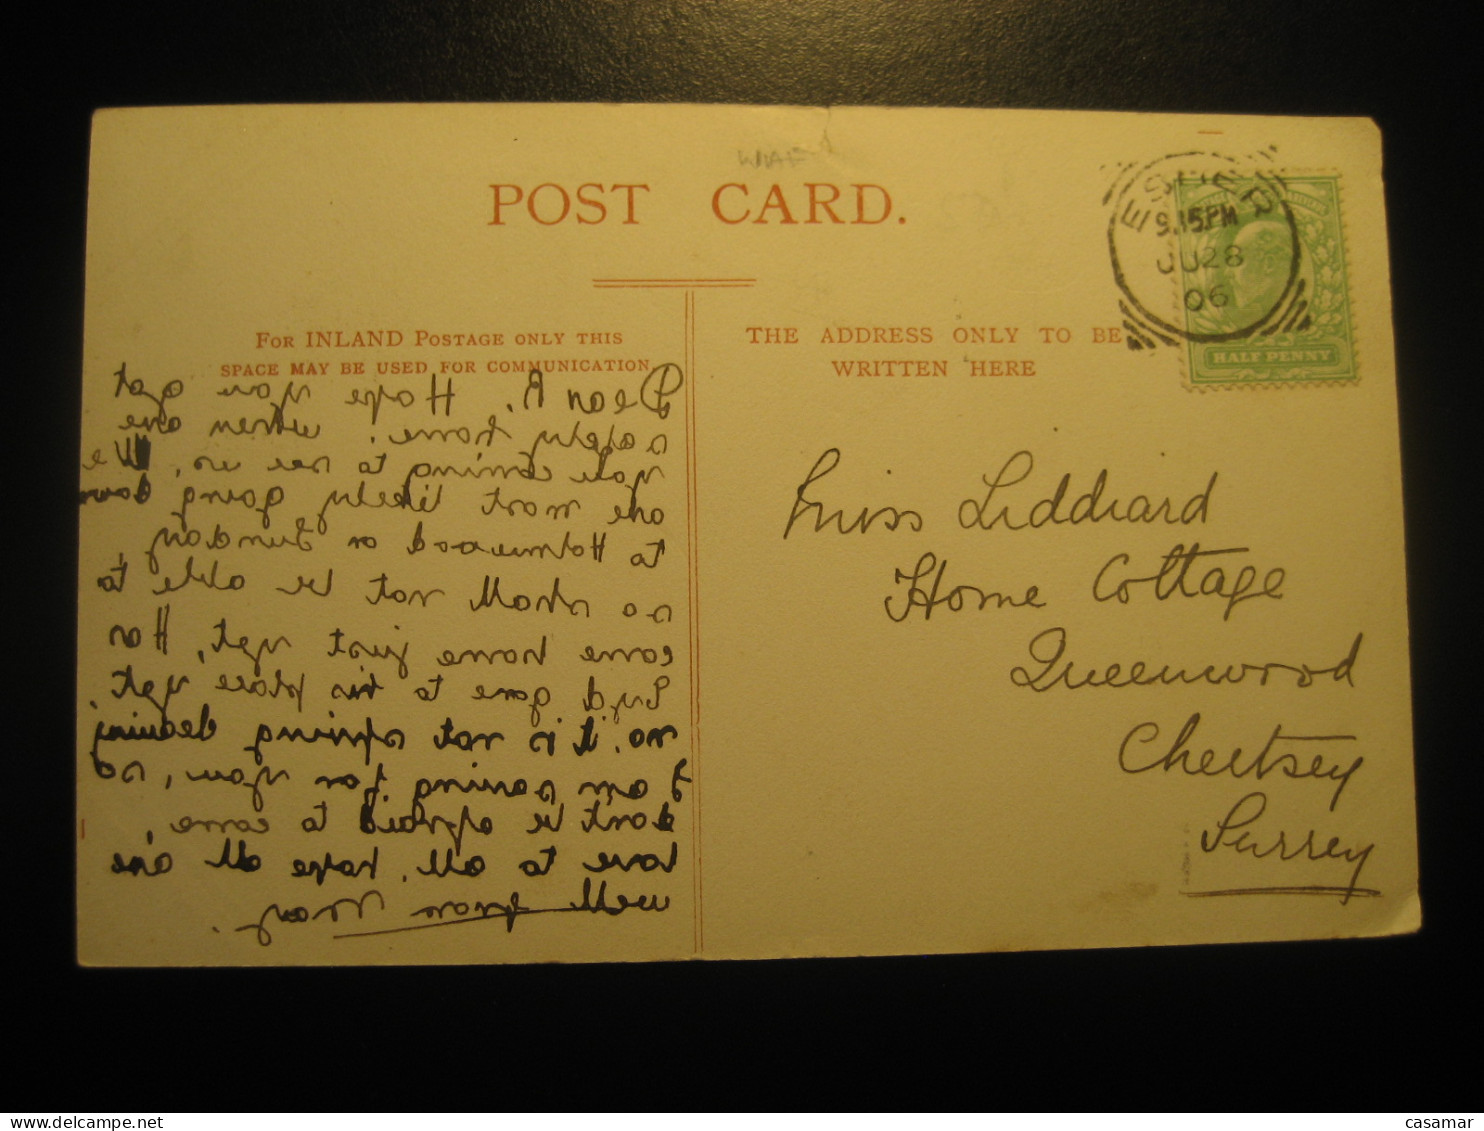 POST CARD.
For INLAND Postage only this
space may be used for communication.
THE ADDRESS ONLY TO BE
WRITTEN HERE
ESHER
9.15PM
JU 28
06
HALF PENNY
Dear R. Hope you got
safely home. when are
you coming to see us, We
are most likely going down
to Holmwood on Sunday
so shall not be able to
come home just yet, Has
Syd gone to his place yet
no. it is not spring cleaning
I am saving for you, so
don't be afraid to come,
love to all. hope all are
well from May.
Miss Liddiard
Home Cottage
Queenwood
Chertsey
Surrey
casamar